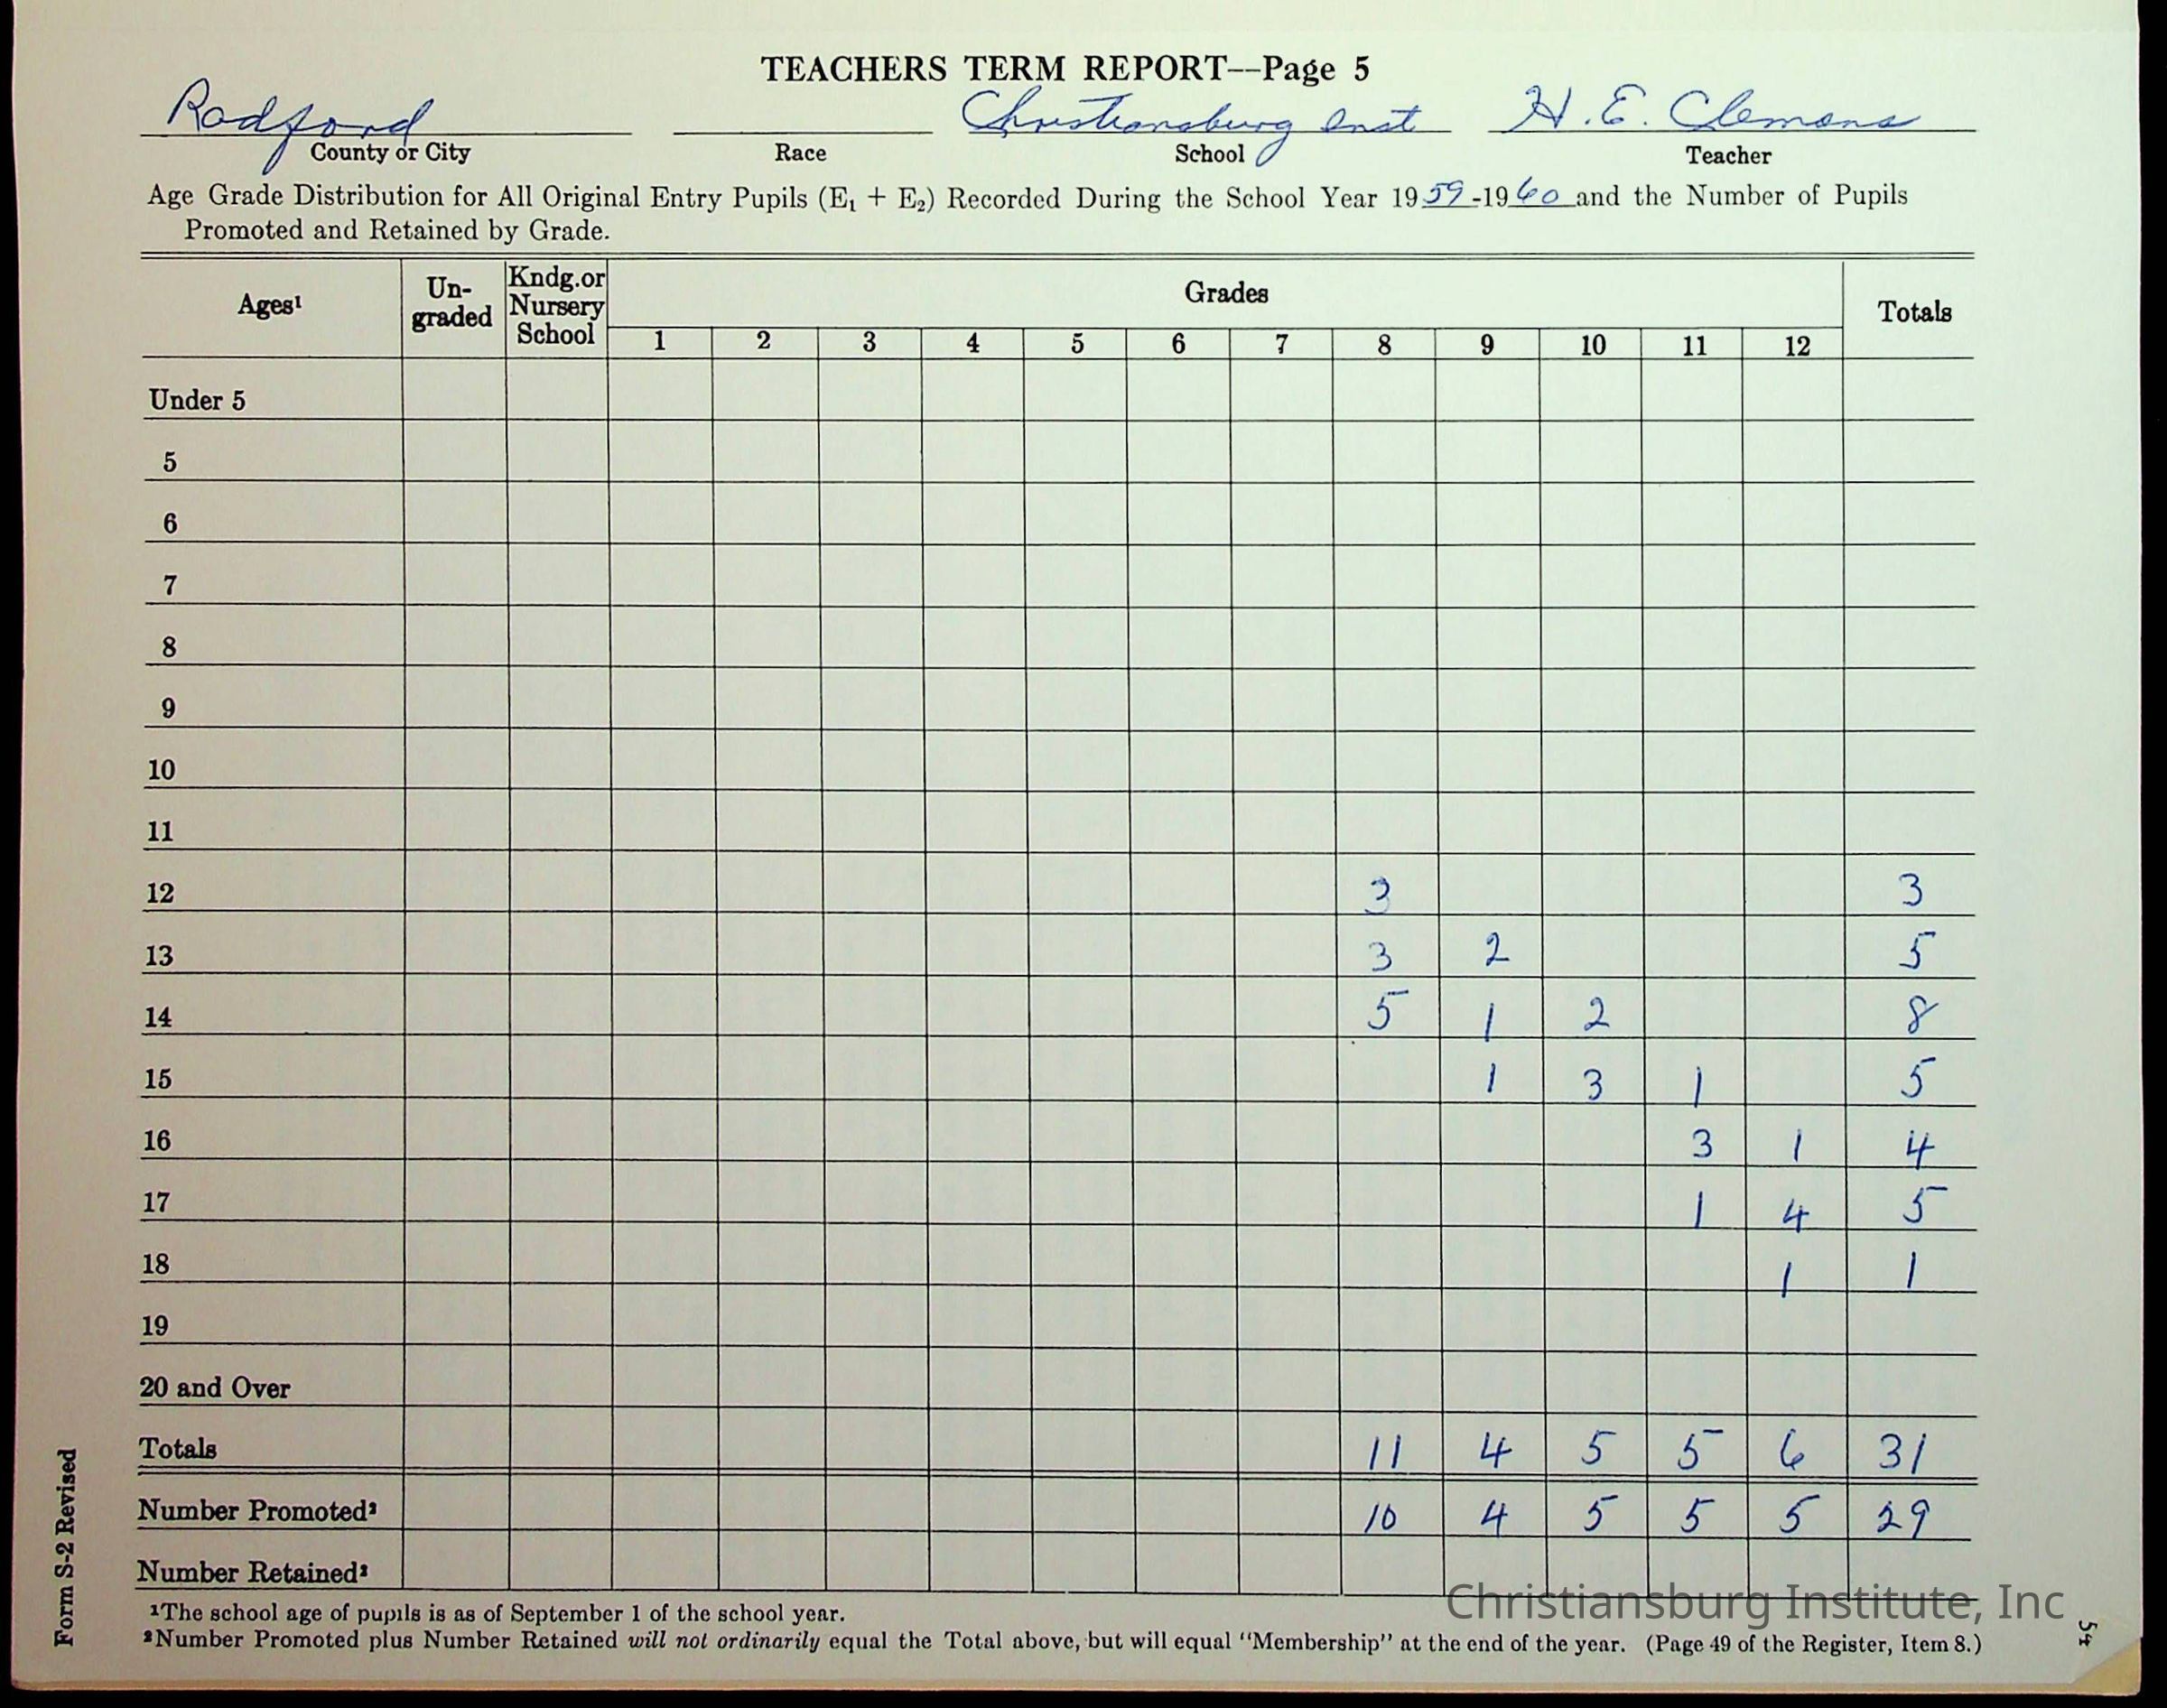 TEACHERS TERM REPORT—Page 5
Radford Christiansburg Inst H. E. Clemons
County or City Race School Teacher
Age Grade Distribution for All Original Entry Pupils (E₁ + E₂) Recorded During the School Year 1959-1960 and the Number of Pupils
Promoted and Retained by Grade.
Ages¹ Un-graded Kndg.or Nursery School Grades Totals
1 2 3 4 5 6 7 8 9 10 11 12
Under 5
5
6
7
8
9
10
11
12 3 3
13 3 2 5
14 5 1 2 8
15 1 3 1 5
16 3 1 4
17 1 4 5
18 1 1
19
20 and Over
Totals 11 4 5 5 6 31
Number Promoted² 10 4 5 5 5 29
Number Retained²
¹The school age of pupils is as of September 1 of the school year.
²Number Promoted plus Number Retained will not ordinarily equal the Total above, but will equal "Membership" at the end of the year. (Page 49 of the Register, Item 8.)
Form S-2 Revised
Christiansburg Institute, Inc
54